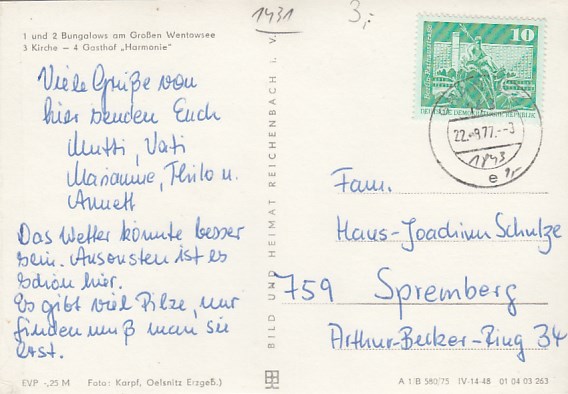 1431
3,-
1 und 2 Bungalows am Großen Wentowsee
3 Kirche — 4 Gasthof „Harmonie"
Viele Grüße von
hier senden Euch
Mutti, Vati
Marianne, Thilo u.
Annett
Das Wetter könnte besser
sein. Ansonsten ist es
schön hier.
Es gibt viel Pilze, nur
finden muß man sie
erst.
EVP -,25 M Foto: Karpf, Oelsnitz Erzgeb.)
BILD UND HEIMAT REICHENBACH I. V.
10
DEUTSCHE DEMOKRATISCHE REPUBLIK
22.-8.77.--3
1843
e
Fam.
Hans-Joachim Schulze
759 Spremberg
Arthur-Becker-Ring 34
A 1/B 580/75 IV-14-48 01 04 03 263